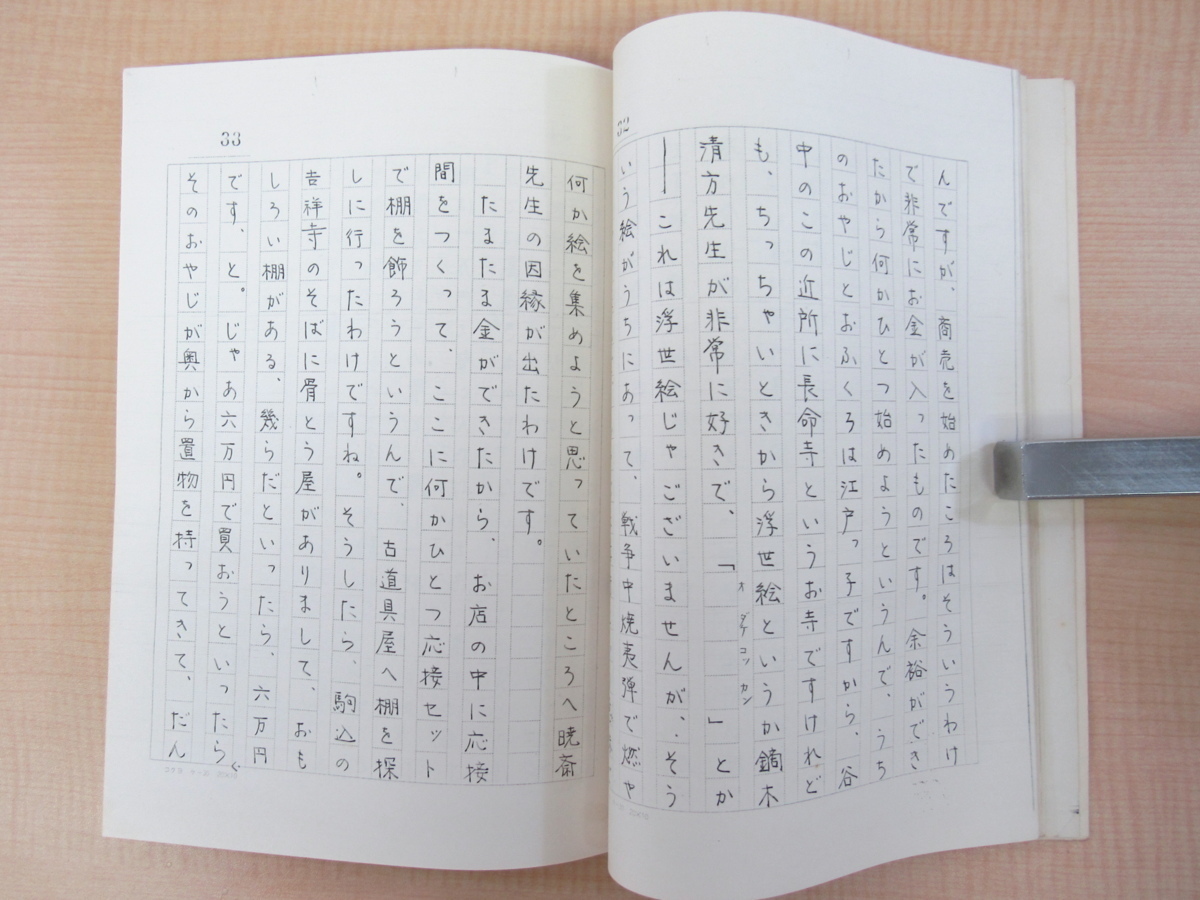 32
んですが、商売を始めたころはそういうわけ
で非常にお金が入ったものです。余裕ができ
たから何かひとつ始めようというんで、うち
のおやじとおふくろは江戸っ子ですから、谷
中のこの近所に長命寺というお寺ですけれど
も、ちっちゃいときから浮世絵というか鏑木
清方先生が非常に好きで、「　　　　」とか
オ　ダイコッカン
――これは浮世絵じゃございませんが、そう
いう絵がうちにあって、戦争中焼夷弾で燃や
33
何か絵を集めようと思っていたところへ暁斎
先生の因縁が出たわけです。
たまたま金ができたから、お店の中に応接
間をつくって、ここに何かひとつ応接セット
で棚を飾ろうというんで、古道具屋へ棚を探
しに行ったわけですね。そうしたら、駒込の
吉祥寺のそばに骨とう屋がありまして、おも
しろい棚がある、幾らだといったら、六万円
です、と。じゃあ六万円で買おうといったら
そのおやじが奥から置物を持ってきて、だん